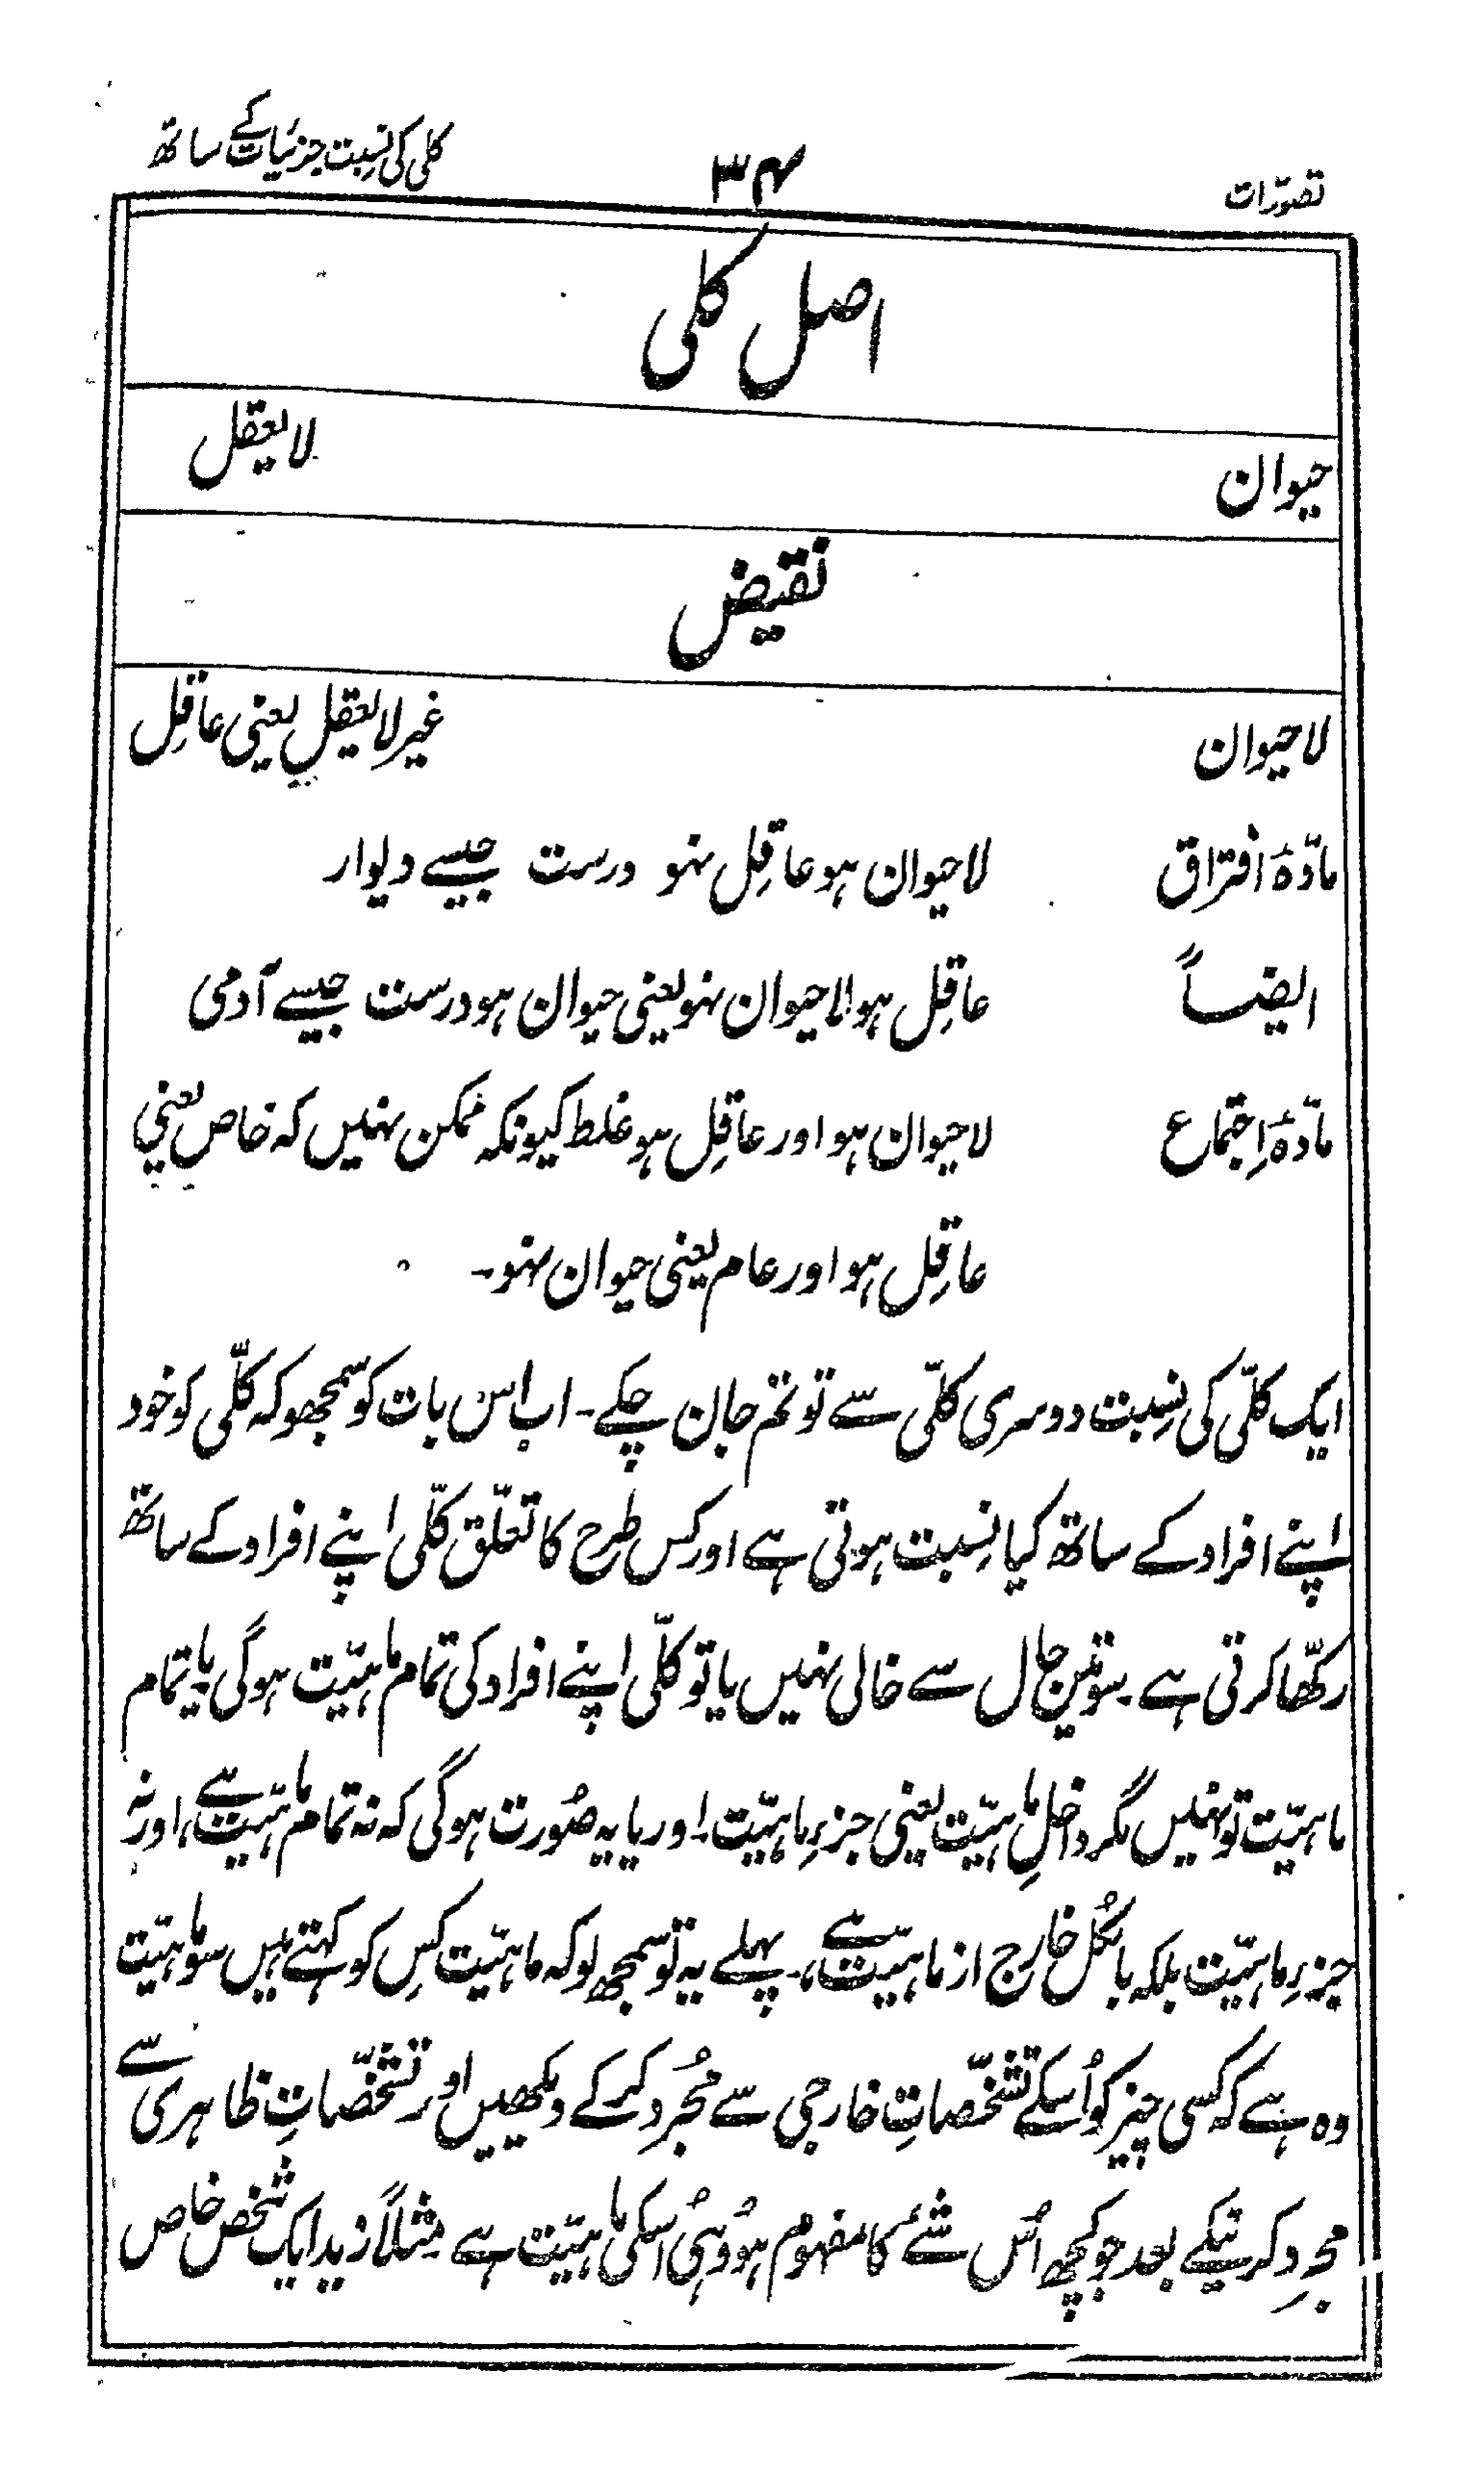 تصوّرات
۳۴
کلی کی نسبت جزئیات کے ساتھ
اصل کلی
حیوان لا یعقل
نقیض
لا حیوان غیر لا یعقل یعنی عاقِل
مادّۂ افتراق لا حیوان ہو عاقِل نہو درست جیسے دیوار
ایضاً عاقِل ہو لا حیوان نہو یعنی حیوان ہو درست جیسے آدمی
مادّۂ اِجتماع لا حیوان ہو اور عاقِل ہو غلط کیونکہ ممکن نہیں کہ خاص یعنی
عاقِل ہو اور عام یعنی حیوان نہو۔
ایک کلّی کی نِسبت دوسری کلّی سے تو تم جان چکے۔ اب اس بات کو سمجھو کہ کلّی کو خود
اپنے افراد کے ساتھ کیا نِسبت ہوتی ہے اور کس طرح کا تعلّق کلّی اپنے افراد کے ساتھ
رکھّا کرتی ہے۔ سو تین حال سے خالی نہیں یا تو کلّی اپنے افراد کی تمام ماہیّت ہوگی یا یہ تمام
ماہیّت تو نہیں مگر داخلِ ماہیّت یعنی جزءِ ماہیّت۔ اور یا یہ صُورت ہوگی کہ نہ تمام ماہیّت ہے، اور نہ
جزءِ ماہیّت بلکہ بالکُل خارج از ماہیّت ہے،۔ پہلے یہ تو سمجھ لو کہ ماہیّت کِس کو کہتے ہیں سو ماہیّت
وہ ہے کہ کسی چیز کو اُسکے تشخّصاتِ خارجی سے مجُرد کر کے دیکھیں اور تشخّصاتِ ظاہری سے
مجرِد کرنیکے بعد جو کچھ اُس شئے کا مفہوم ہو وُہی اُسکی ماہیّت ہے مِثلاً زید ایک شخص خاص